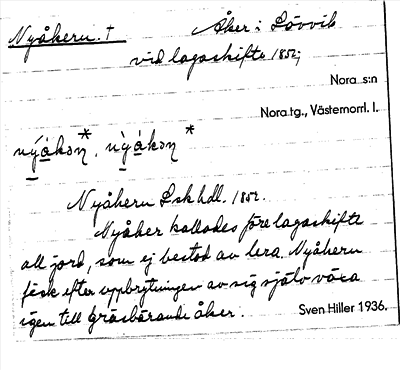 Nyåkern. †
Åker i Lövvik
vid lagaskifte 1852;
Nora s:n
Nora tg., Västernorrl. l.
Nyåkern Lskhdl. 1852.
Nyåker kallades före lagaskifte
all jord, som ej bestod av lera. Nyåkern
fick efter uppbrytningen av sig själv växa
igen till gräsbärande åker.
Sven Hiller 1936.